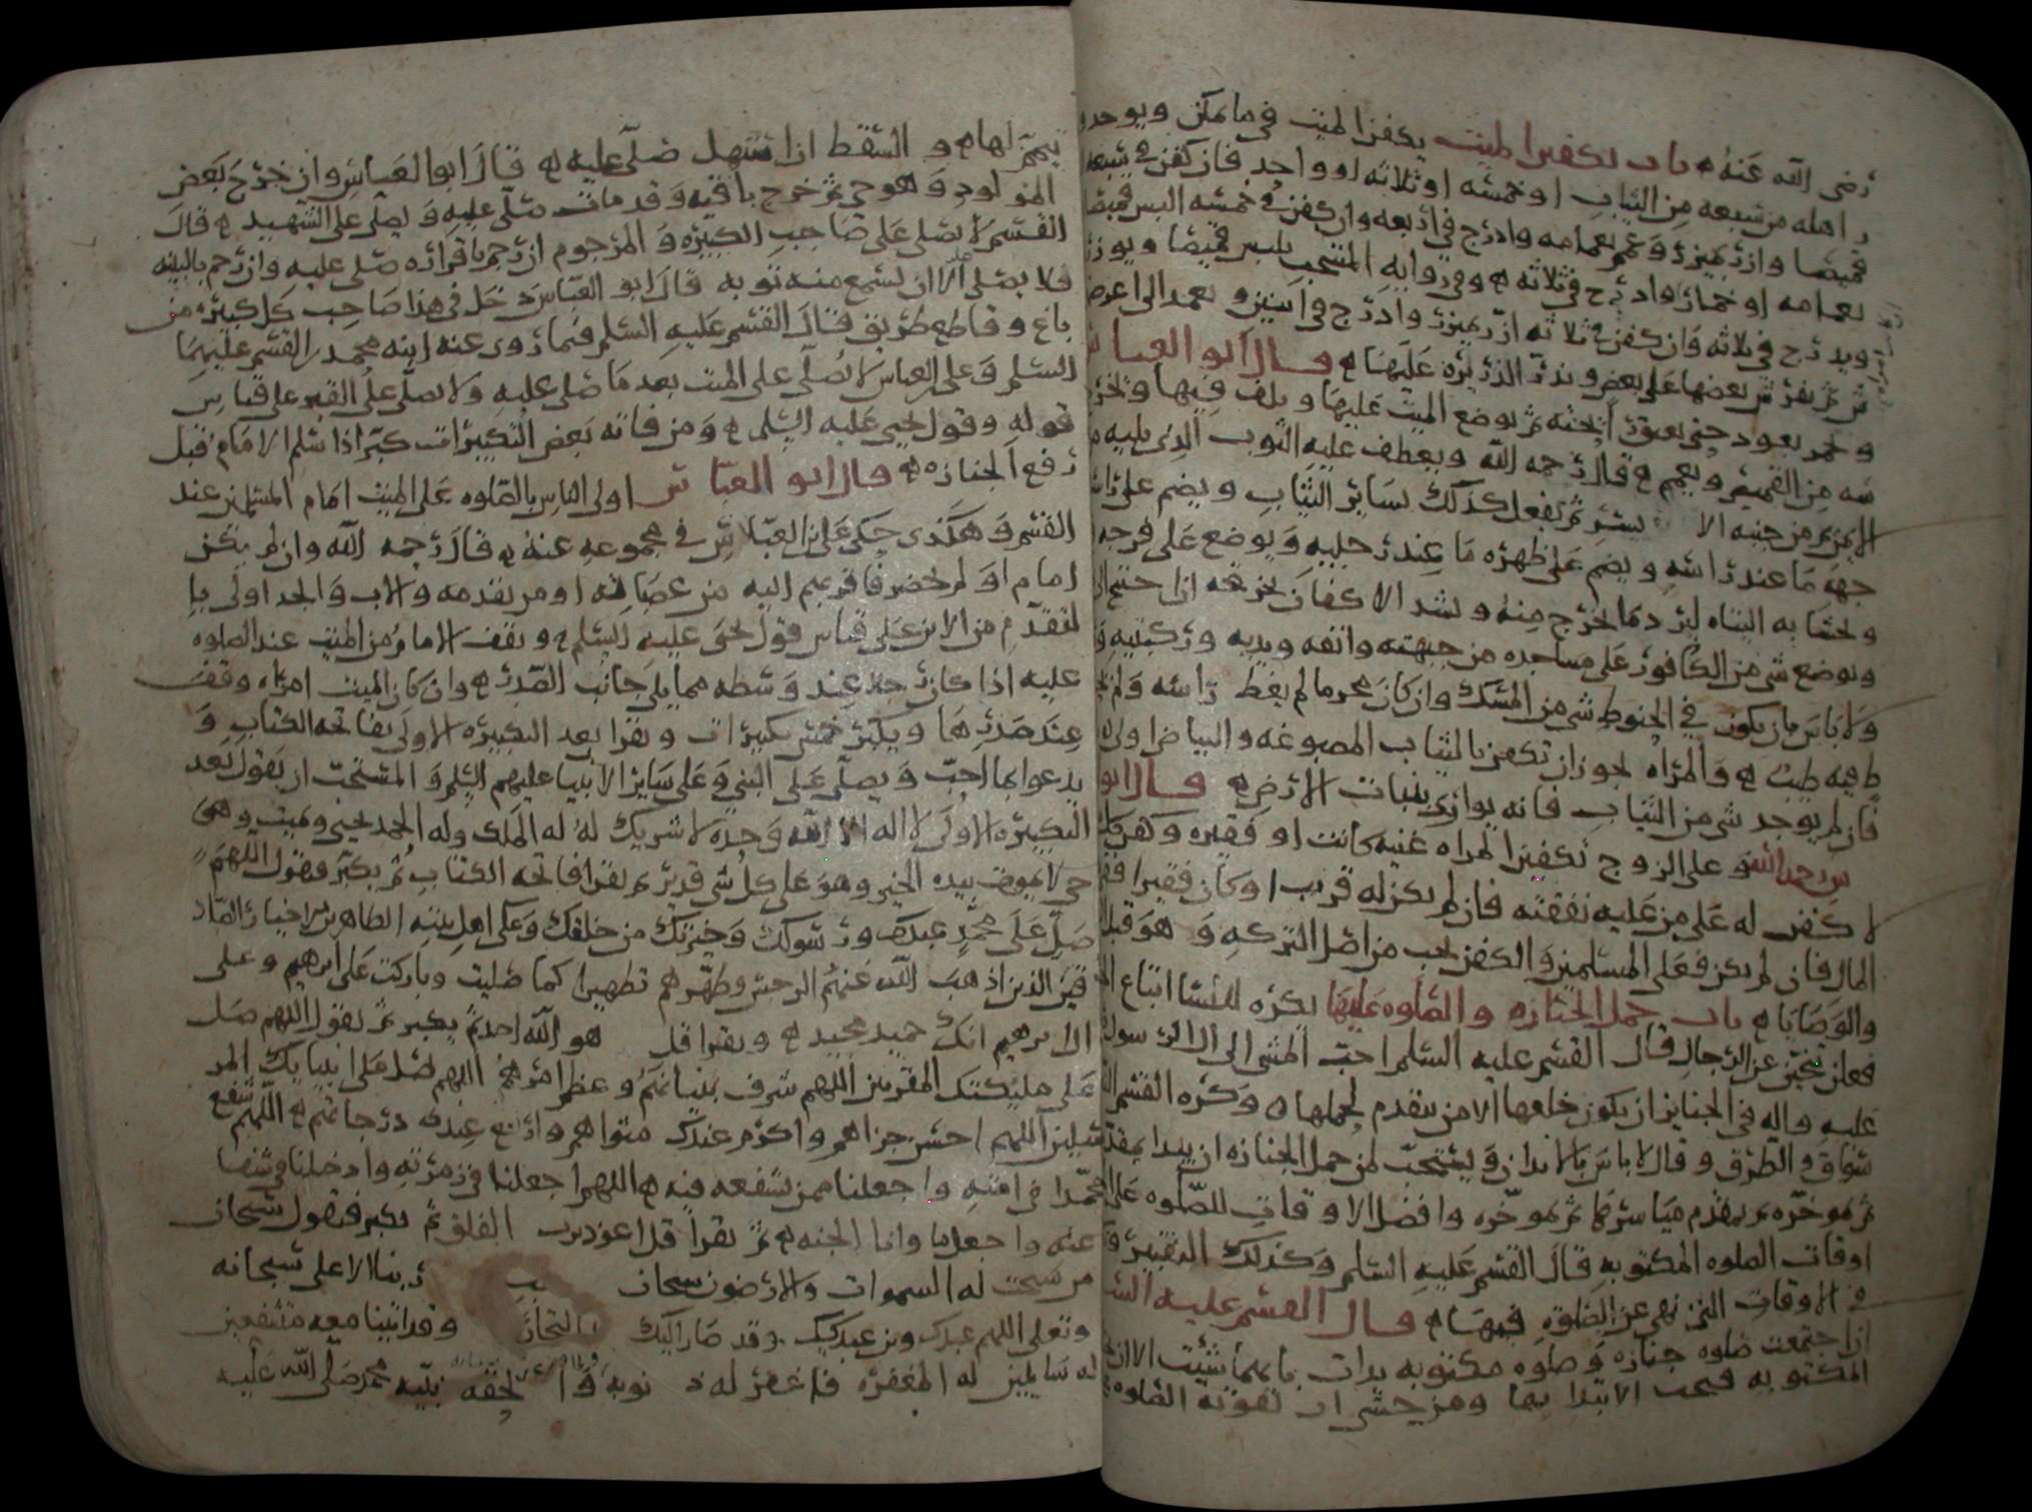 رضى الله عنه باب تكفين الميت يكفن الميت فى ما يمكن ويوجد
اهله من سبعه من الثياب او خمسه او ثلاثه او واحد فان كفن فى سبعه
قميصا وازر بميزر وعمم بعمامه وادرج فى اربعه وان كفن فى خمسه البس قميصا
بعمامه او خمار وادرج فى ثلاثه وفى روايه المنتخب يلبس قميصا ويوزر
ويدرج فى ثلاثه وان كفن فى ثلاثه ازر بميزر وادرج فى اثنين ويعمد الى اعرض
ثم يفرش بعضها على بعض وتذر الذريره عليها قال ابو العباس
وتجمر بعود حتى يعبق ريحته ثم يوضع الميت عليها ويلف فيها
من القميص ويعمم قال رحمه الله ويعطف عليه الثوب الذى يليه
الايمن من جنبه الا يسر ثم يفعل كذلك بساير الثياب ويضم على
جهه ما عند راسه ويضم على ظهره ما عند رجليه ويوضع على فرجه
ويحشا به اليتاه ليرد ما يخرج منه ويشد الاكفان بخرقه اذا احتيج الى
ويوضع شى من الكافور على مساجده من جبهته وانفه ويديه وركبتيه
ولا باس بان يكون فى الحنوط شى من المسك وان كان محرما لم يغط راسه ولم
فيه طيب والمراه يجوز ان تكفن بالثياب المصبوغه والبياض اولى
فان لم يوجد شى من الثياب فانه يوارى بنبات الارض قال ابو
رحمه الله وعلى الزوج تكفين المراه غنيه كانت او فقيره وكفن
لا كفن له على من عليه نفقته فان لم يكن له قريب او كان فقيرا
المال فان لم يكن فعلى المسلمين والكفن يجب من اصل التركه وهو قبل
والوصايا باب حمل الجنازه والصلوه عليها يكره للنسا اتباع
فعلن تنحين عن الرجال قال القسم عليه السلم احب المشى الى ال الرسول
عليه واله فى الجنايز ان يكون خلفها الا من يتقدم لحملها وكره القسم
الطرق وقال لا باس بالايذان ويستحب لمن حمل الجنازه ان يبدا بمقدم
ثم موخره ثم بمقدم مياسرها ثم موخره وافضل الاوقات للصلوه على
اوقات الصلوه المكتوبه قال القسم عليه السلم وكذلك التقبير
فى الاوقات التى نهى عن الصلوه فيها قال القسم عليه
اذا اجتمعت صلوه جنازه وصلوه مكتوبه بدات بايهما شئت الا ان
المكتوبه فيجب الابتدا بها ومن خشى ان تفوته الصلوه
تيمم لها والسقط اذا استهل صلى عليه قال ابو العباس وان خرج بعض
المولود وهو حى ثم خرج باقيه وقد مات صلى عليه ويصلى على الشهيد قال
القسم لا يصلى على صاحب الكبيره والمرجوم ان رجم باقراره صلى عليه وان رجم بالبينه
فلا يصلى الا ان تسمع منه توبه قال ابو العباس دخل فى هذا صاحب كل كبيره من
باغ وقاطع طريق قال القسم عليه السلم فيما روى عنه ابنه محمد بن القسم عليهما
السلم وعلى بن العباس لا يصلى على الميت بعد ما صلى عليه ولا يصلى على القبر على قياس
قوله وقول يحيى عليه السلم ومن فاته بعض التكبيرات كبر اذا سلم الامام قبل
رفع الجنازه قال ابو العباس اولى الناس بالصلوه على الميت امام المسلمين عند
القسم وهكذى حكى على بن العباس فى مجموعه عنه قال رحمه الله وان لم يكن
امام او لم يحضر فاقربهم اليه من عصباته او من يقدمه والاب والجد اولى با
لتقدم من الابن على قياس قول يحيى عليه السلم ويقف الامام من الميت عند الصلوه
عليه اذا كان رجلا عند وسطه مما يلى جانب الصدر وان كان الميت امراه وقف
عند صدرها ويكبر خمس تكبيرات ويقرا بعد التكبيره الاولى بفاتحه الكتاب و
يدعو بما احب ويصلى على النبى وعلى ساير الانبيا عليهم السلم والمستحب ان يقول بعد
التكبيره الاولى لا اله الا الله وحده لا شريك له له الملك وله الحمد يحيى ويميت وهو
حى لا يموت بيده الخير وهو على كل شى قدير ثم يقرا فاتحه الكتاب ثم يكبر فيقول اللهم
صل على محمد عبدك ورسولك وخيرتك من خلقك وعلى اهل بيته الطاهرين الاخيار الصاد
قين الذين اذهب الله عنهم الرجس وطهرهم تطهيرا كما صليت وباركت على ابرهيم وعلى
ال ابرهيم انك حميد مجيد ويقرا قل هو الله احد ثم يكبر ثم يقول اللهم صل
على مليكتك المقربين اللهم شرف بنيانهم وعظم امرهم اللهم صل على انبيايك المر
سلين اللهم احسن جزاهم واكرم عندك مثواهم وارفع عندك درجاتهم اللهم شفع
محمدا فى امته واجعلنا ممن تشفعه فيه اللهم اجعلنا فى زمرته وادخلنا فى شفا
عته واجعل مأوانا الجنه ثم يقرا قل اعوذ برب الفلق ثم يكبر فيقول سبحان
من سبحت له السموات والارضون سبحان ربنا الاعلى سبحانه
وتعلى اللهم عبدك وبن عبديك وقد صار اليك وقد اتينا معه متشفعين
له سايلين له المغفره فاغفر له ذنوبه والحقه بنبيه محمد صلى الله عليه